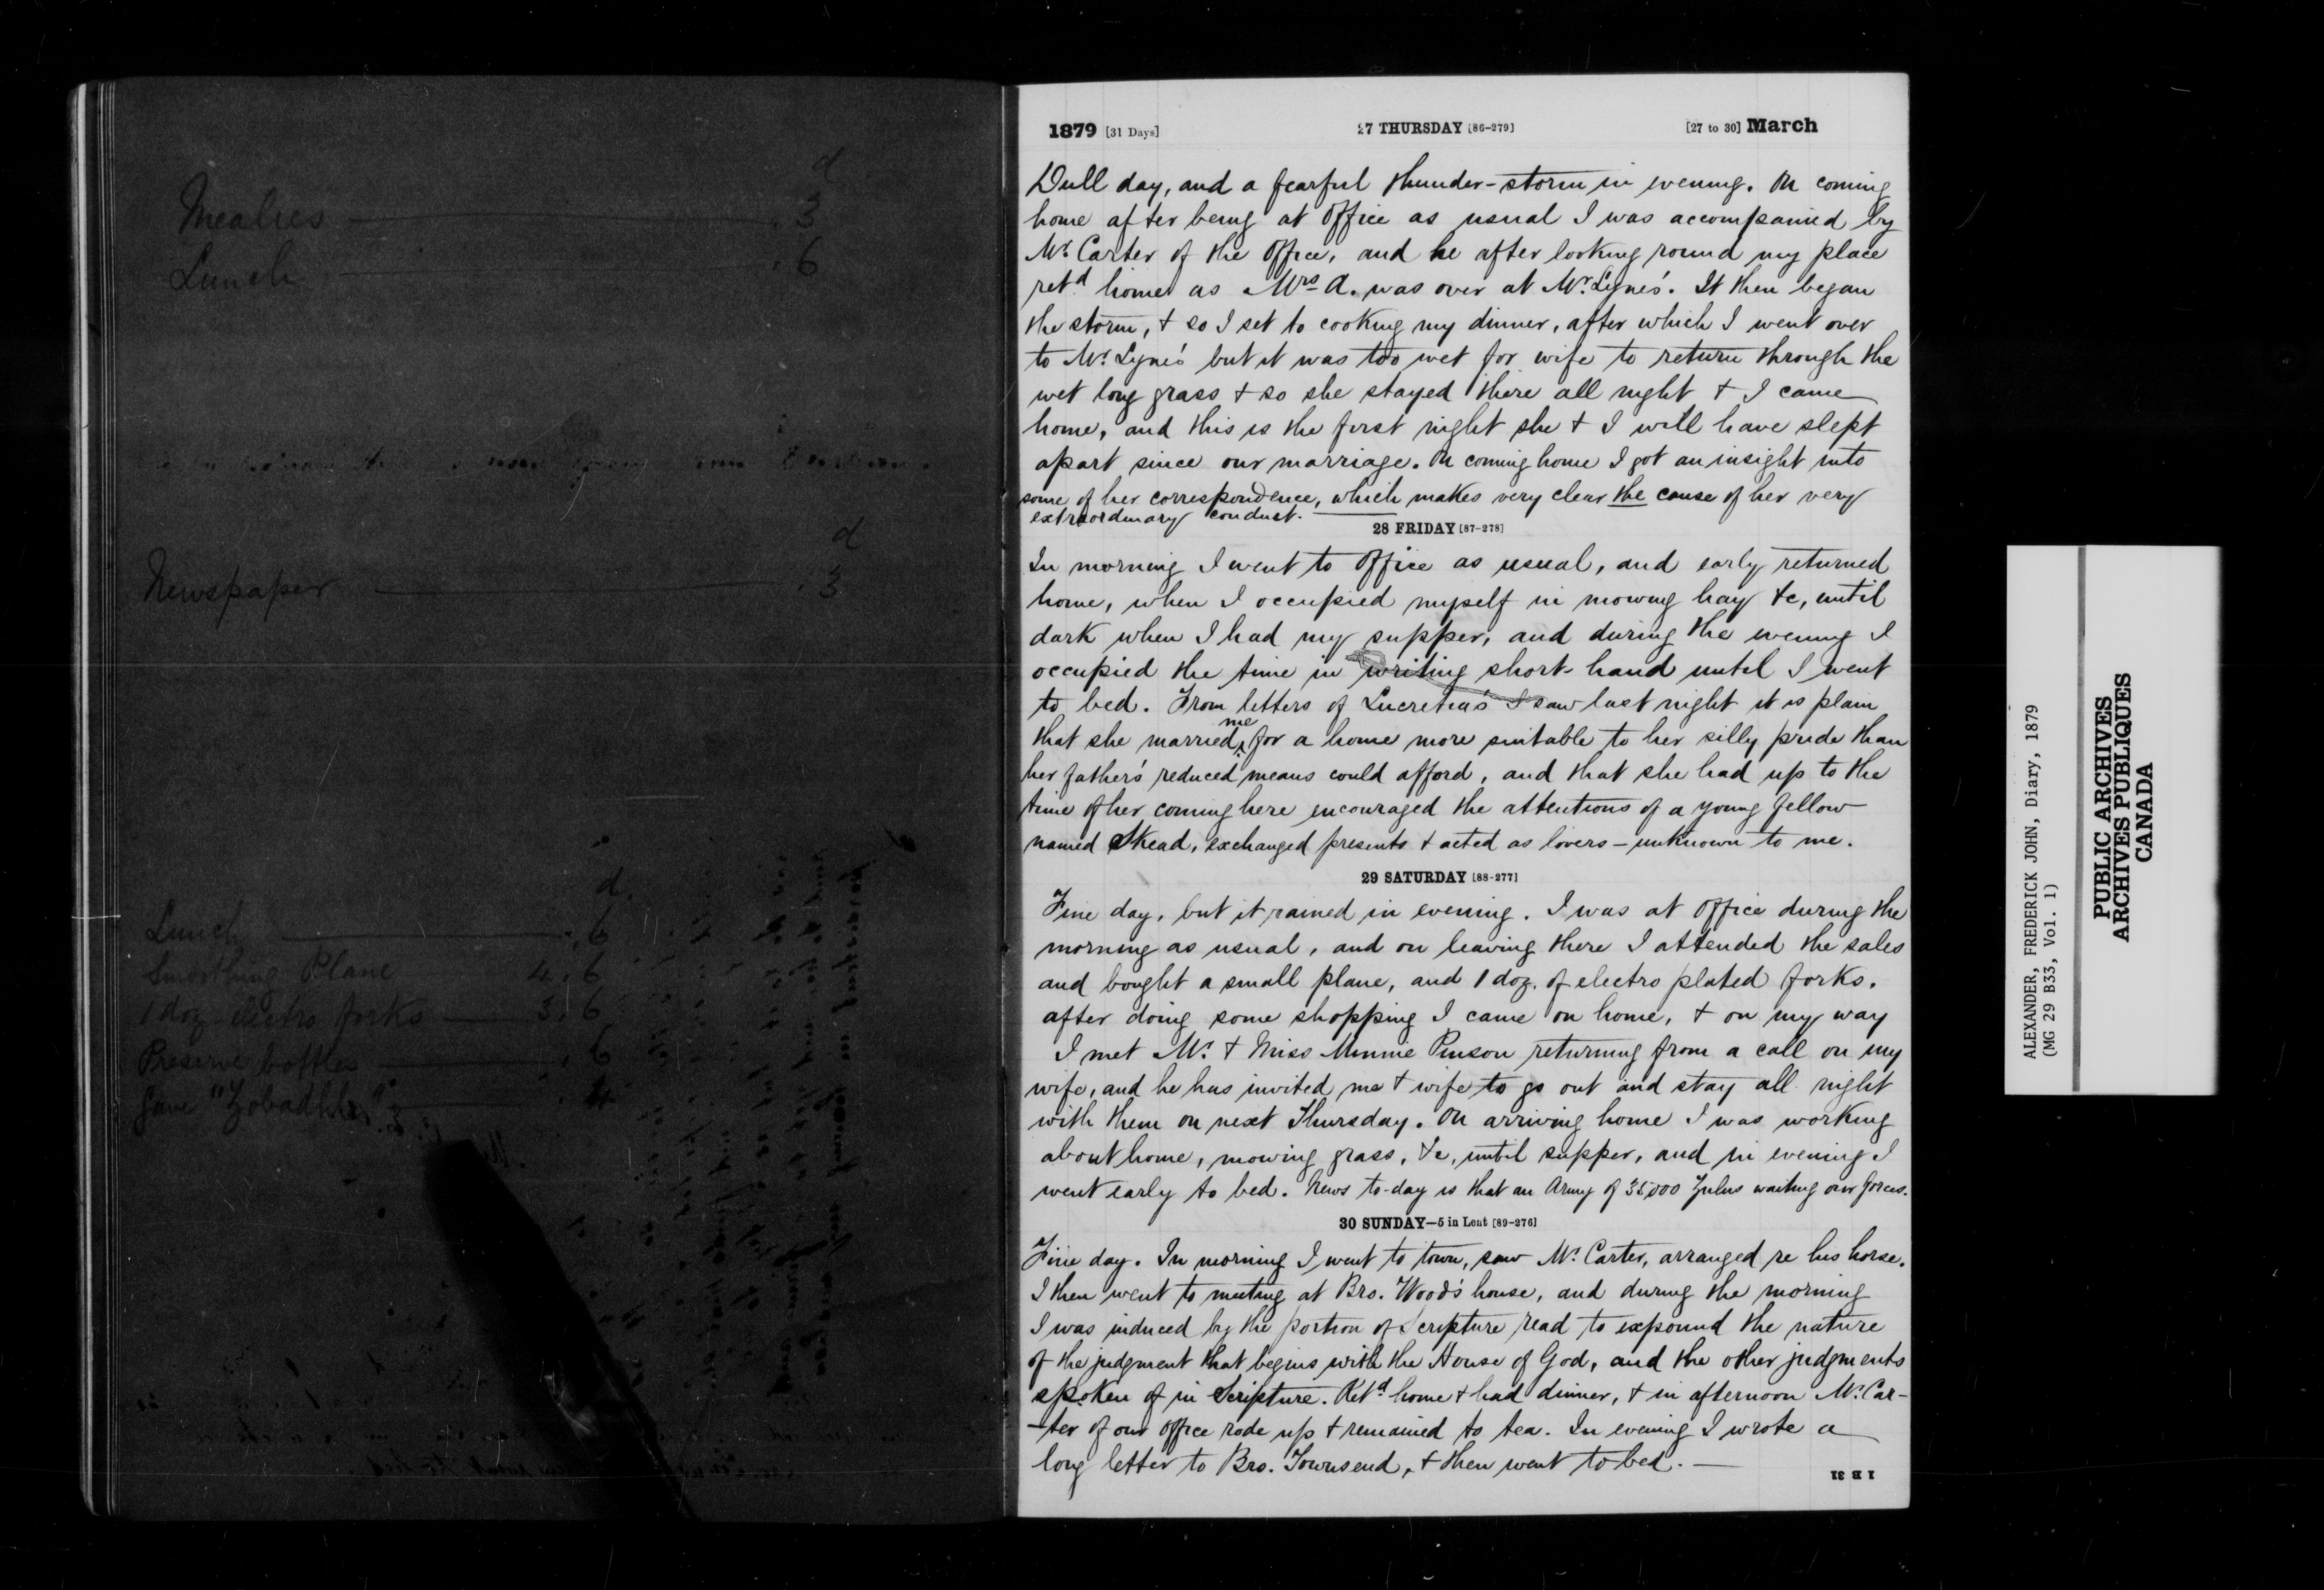 d
Mealies .3
Lunch .6
d
Newspaper 3
d
Lunch .6
Smoothing Plane 4.6
1 doz electro forks 3.6
Preserve bottles .6
gave
1879 [31 Days] 27 THURSDAY [86-279] [27 to 30] March
Dull day, and a fearful thunder-storm in evening. On coming
home after being at Office as usual I was accompanied by
Mr. Carter of the Office, and he after looking round my place
retd home as Mrs A. was over at Mr. Lyne's. It then began
the storm, & so I set to cooking my dinner, after which I went over
to Mr. Lyne's but it was too wet for wife to return through the
wet long grass & so she stayed there all night & I came
home, and this is the first night she & I will have slept
apart since our marriage. On coming home I got an insight into
some of her correspondence, which makes very clear the cause of her very
extraordinary conduct.
28 FRIDAY [87-278]
In morning I went to Office as usual, and early returned
home, when I occupied myself in mowing hay &c, until
dark when I had my supper, and during the evening I
occupied the time in writing short-hand until I went
to bed. From letters of Lucretia's I saw last night it is plain
that she married me for a home more suitable to her silly pride than
her father's reduced means could afford, and that she had up to the
time of her coming here encouraged the attentions of a young fellow
named Skead, exchanged presents & acted as lovers - unknown to me.
29 SATURDAY [88-277]
Fine day, but it rained in evening. I was at Office during the
morning as usual, and on leaving there I attended the sales
and bought a small plane, and 1 doz. of electro plated forks.
after doing some shopping I came on home, & on my way
I met Mr. & Miss Minnie Pinson returning from a call on my
wife, and he has invited me & wife to go out and stay all night
with them on next Thursday. On arriving home I was working
about home, mowing grass, &c, until supper, and in evening I
went early to bed. News to-day is that an Army of 35,000 Zulus waiting our forces.
30 SUNDAY—5 in Lent [89-276]
Fine day. In morning I went to town, saw Mr. Carter, arranged re his horse.
I then went to meeting at Bro. Wood's house, and during the morning
I was induced by the portion of Scripture read to expound the nature
of the judgment that begins with the House of God, and the other judgments
spoken of in Scripture. Retd home & had dinner, & in afternoon Mr. Car-
-ter of our Office rode up & remained to tea. In evening I wrote a
long letter to Bro. Townsend, & then went to bed.
I B 31
ALEXANDER, FREDERICK JOHN, Diary, 1879
(MG 29 B33, Vol. 1)
PUBLIC ARCHIVES
ARCHIVES PUBLIQUES
CANADA